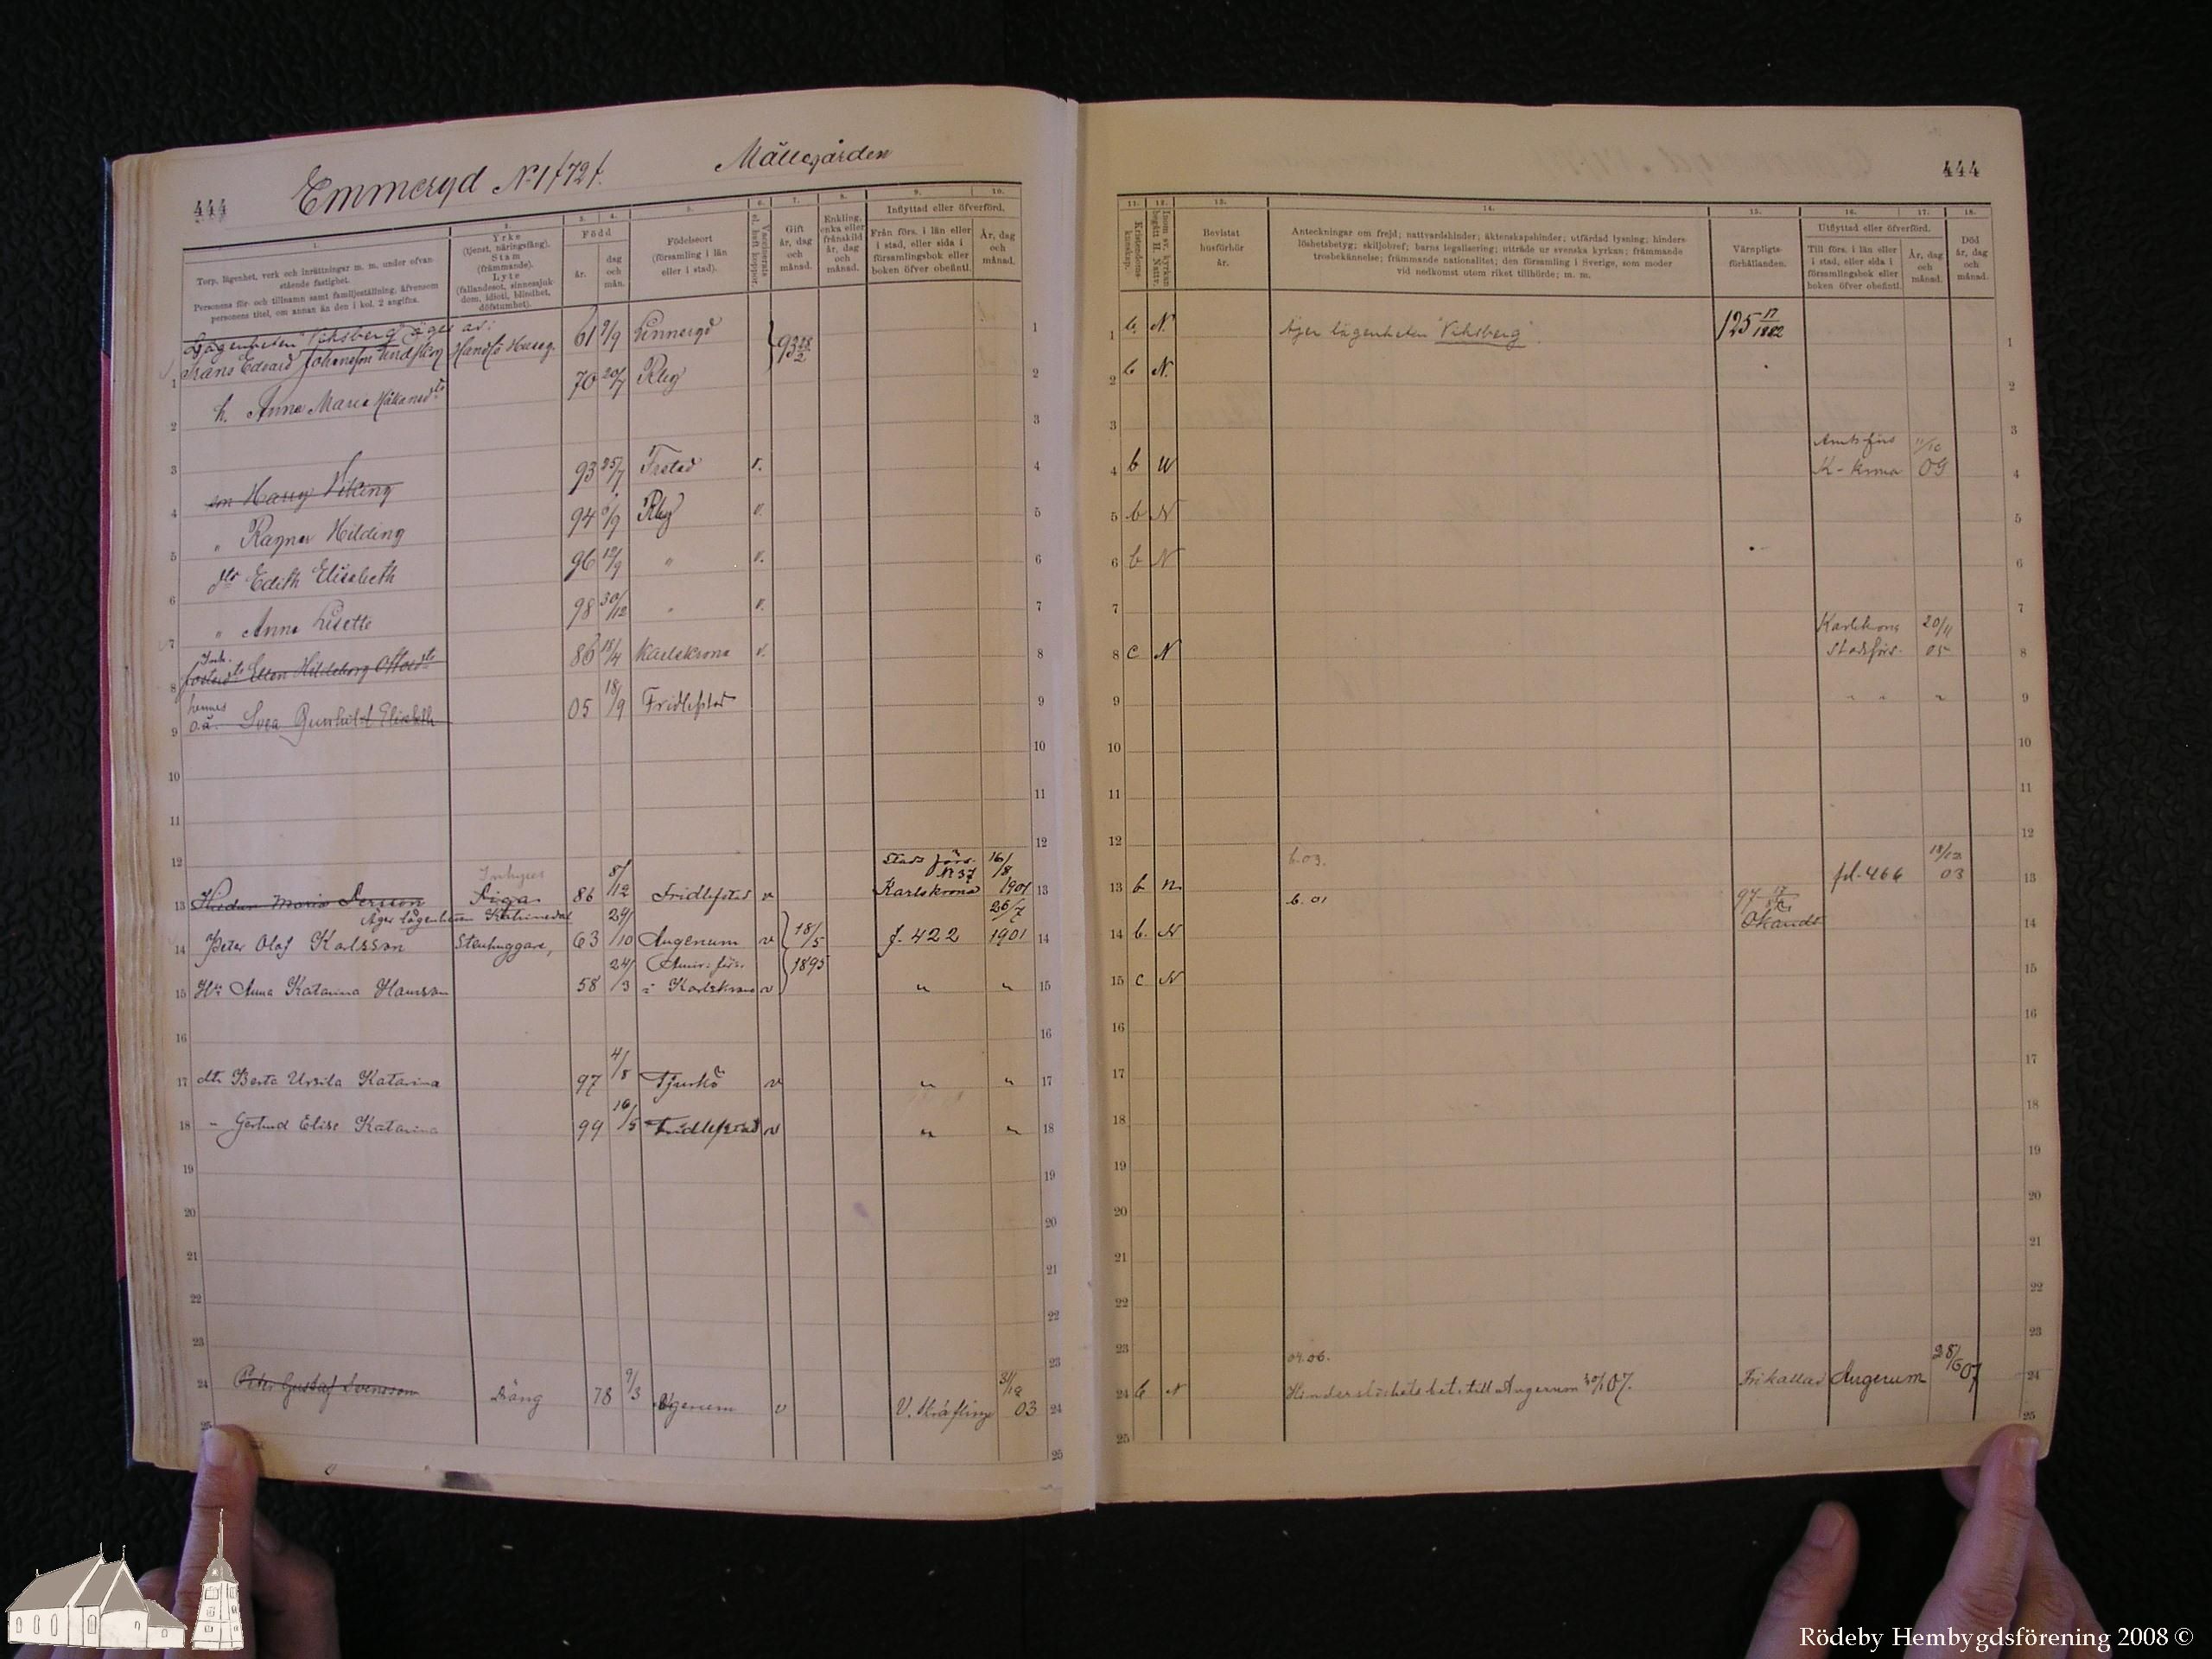 444
Emmeryd N:1 /72/.
Mällegården
1.
Torp, lägenhet, verk och inrättningar m. m. under ofvan-
stående fastighet.
Personens för- och tillnamn samt familjeställning, äfvensom
personens titel, om annan än den i kol. 2 angifna.
2.
Yrke
(tjenst, näringsfång).
Stam
(främmande).
Lyte
(fallandesot, sinnessjuk-
dom, idioti, blindhet,
döfstumhet).
3. 4.
Född
år.
dag
och
mån.
5.
Födelseort
(församling i län
eller i stad).
6.
Vaccinerats
el. haft koppor.
7.
Gift
år, dag
och
månad.
8.
Enkling,
enka eller
frånskild
år, dag
och
månad.
9. 10.
Inflyttad eller öfverförd.
Från förs. i län eller
i stad, eller sida i
församlingsbok eller
boken öfver obefintl.
År, dag
och
månad.
Lägenheten "Viksberg" äges av:
1 Frans Edvard Johansson Lindberg 61 9/9 Linneryd 93 28/2 1
2 h. Anna Maria Håkansdtr 70 20/7 Rby 2
3 3
4 son Harry Viking 93 25/7 Frstad v. 4
5 " Ragnar Hilding 94 Rby v. 5
6 dtr Edith Elisabeth 96 12/9 " v. 6
7 " Anna Lisette 98 30/12 " v. 7
8 Ellen Hildeborg 86 18/4 Karlskrona v. 8
hennes
9 o.ä. Svea Gunhild Elisabeth 05 18/9 Fridlefstad 9
10 10
11 11
12 12
Inhyses 8/ Stads förs. 16/8
N 37
13 Maria Persson Piga 86 /12 Fridlefstad v Karlskrona 1901 13
Äger lägenheten Katrinedal 29/ 26/7
14 Peter Olof Karlsson Stenhuggare, 63 /10 Augerum v 18/5 f. 422 1901 14
24/ Amir. förs. 1895
15 Hu Anna Katarina Hansson 58 /3 i Karlskrona v " " 15
16 16
17 dtr Berta Ursila Katarina 97 4/8 Tjurkö v " " 17
18 " Gertrud Elise Katarina 99 16/5 Fridlefstad v " " 18
19 19
20 20
21 21
22 22
23 23
24 Peter Gustaf Svensson Dräng 78 9/3 Augerum v V. 31/12 03 24
25 25
444
11.
Kristendoms-
kunskap.
12.
Inom sv. kyrkan
begått H. Nattv.
13.
Bevistat
husförhör
år.
14.
Anteckningar om frejd; nattvardshinder; äktenskapshinder; utfärdad lysning; hinders-
löshetsbetyg; skiljobref; barns legalisering; utträde ur svenska kyrkan; främmande
trosbekännelse; främmande nationalitet; den församling i Sverige, som moder
vid nedkomst utom riket tillhörde; m. m.
15.
Värnpligts-
förhållanden.
16. 17.
Utflyttad eller öfverförd.
Till förs. i län eller
i stad, eller sida i
församlingsbok eller
boken öfver obefintl.
År, dag
och
månad.
18.
Död
år, dag
och
månad.
1 b. N. Äger lägenheten "Viksberg". 125 17/1882 1
2 b N. 2
3 3
4 b N K-krona 11/10 09 4
5 b N 5
6 b N 6
7 7
8 c N Karlskrona Stadsförs. 20/11 05 8
9 " " " 9
10 10
11 11
12 12
b. 03.
13 b n. fol. 466 18/12 03 13
b. 01
14 b. N 97 14
15 c N 15
16 16
17 17
18 18
19 19
20 20
21 21
22 22
23 23
04. 06.
24 b N Hinderslöshets bet. till Augerum 07. Frikallad Augerum 07 24
25 25
Rödeby Hembygdsförening 2008 ©